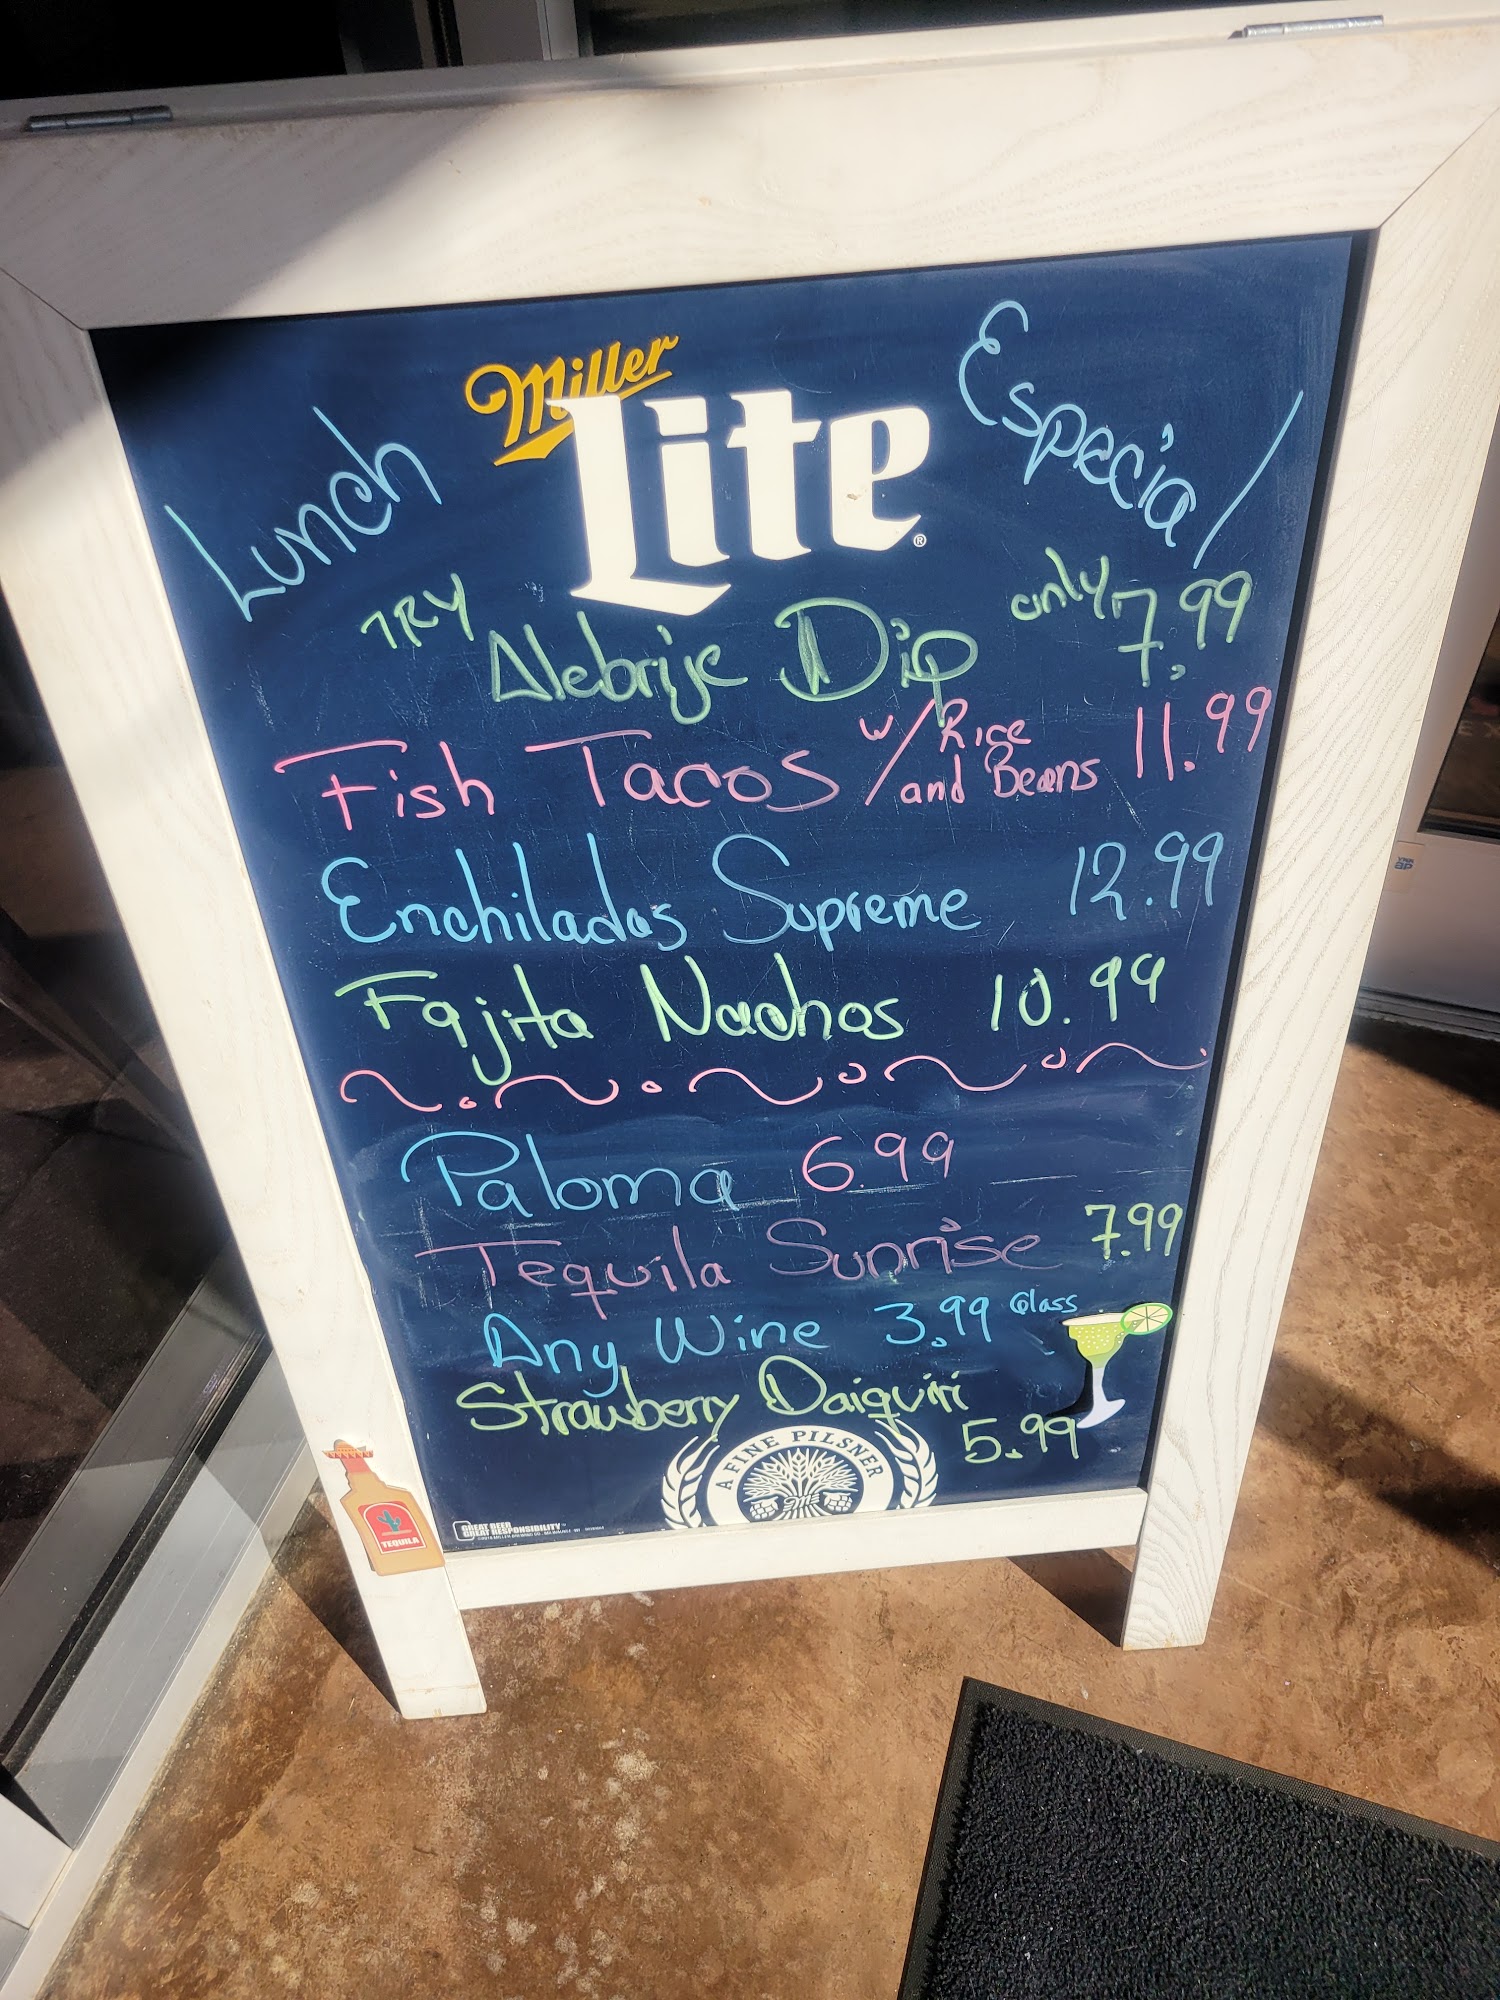 Miller
Lite®
Lunch Especial
TRY Alebrije Dip only 7.99
Fish Tacos w/Rice and Beans 11.99
Enchiladas Supreme 12.99
Fajita Nachos 10.99
Paloma 6.99
Tequila Sunrise 7.99
Any Wine 3.99 Glass
Strawberry Daiquiri
5.99
A FINE PILSNER
TEQUILA
GREAT BEER
GREAT RESPONSIBILITY™